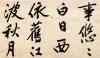 事悠〻
白日西
依舊江
波秋月